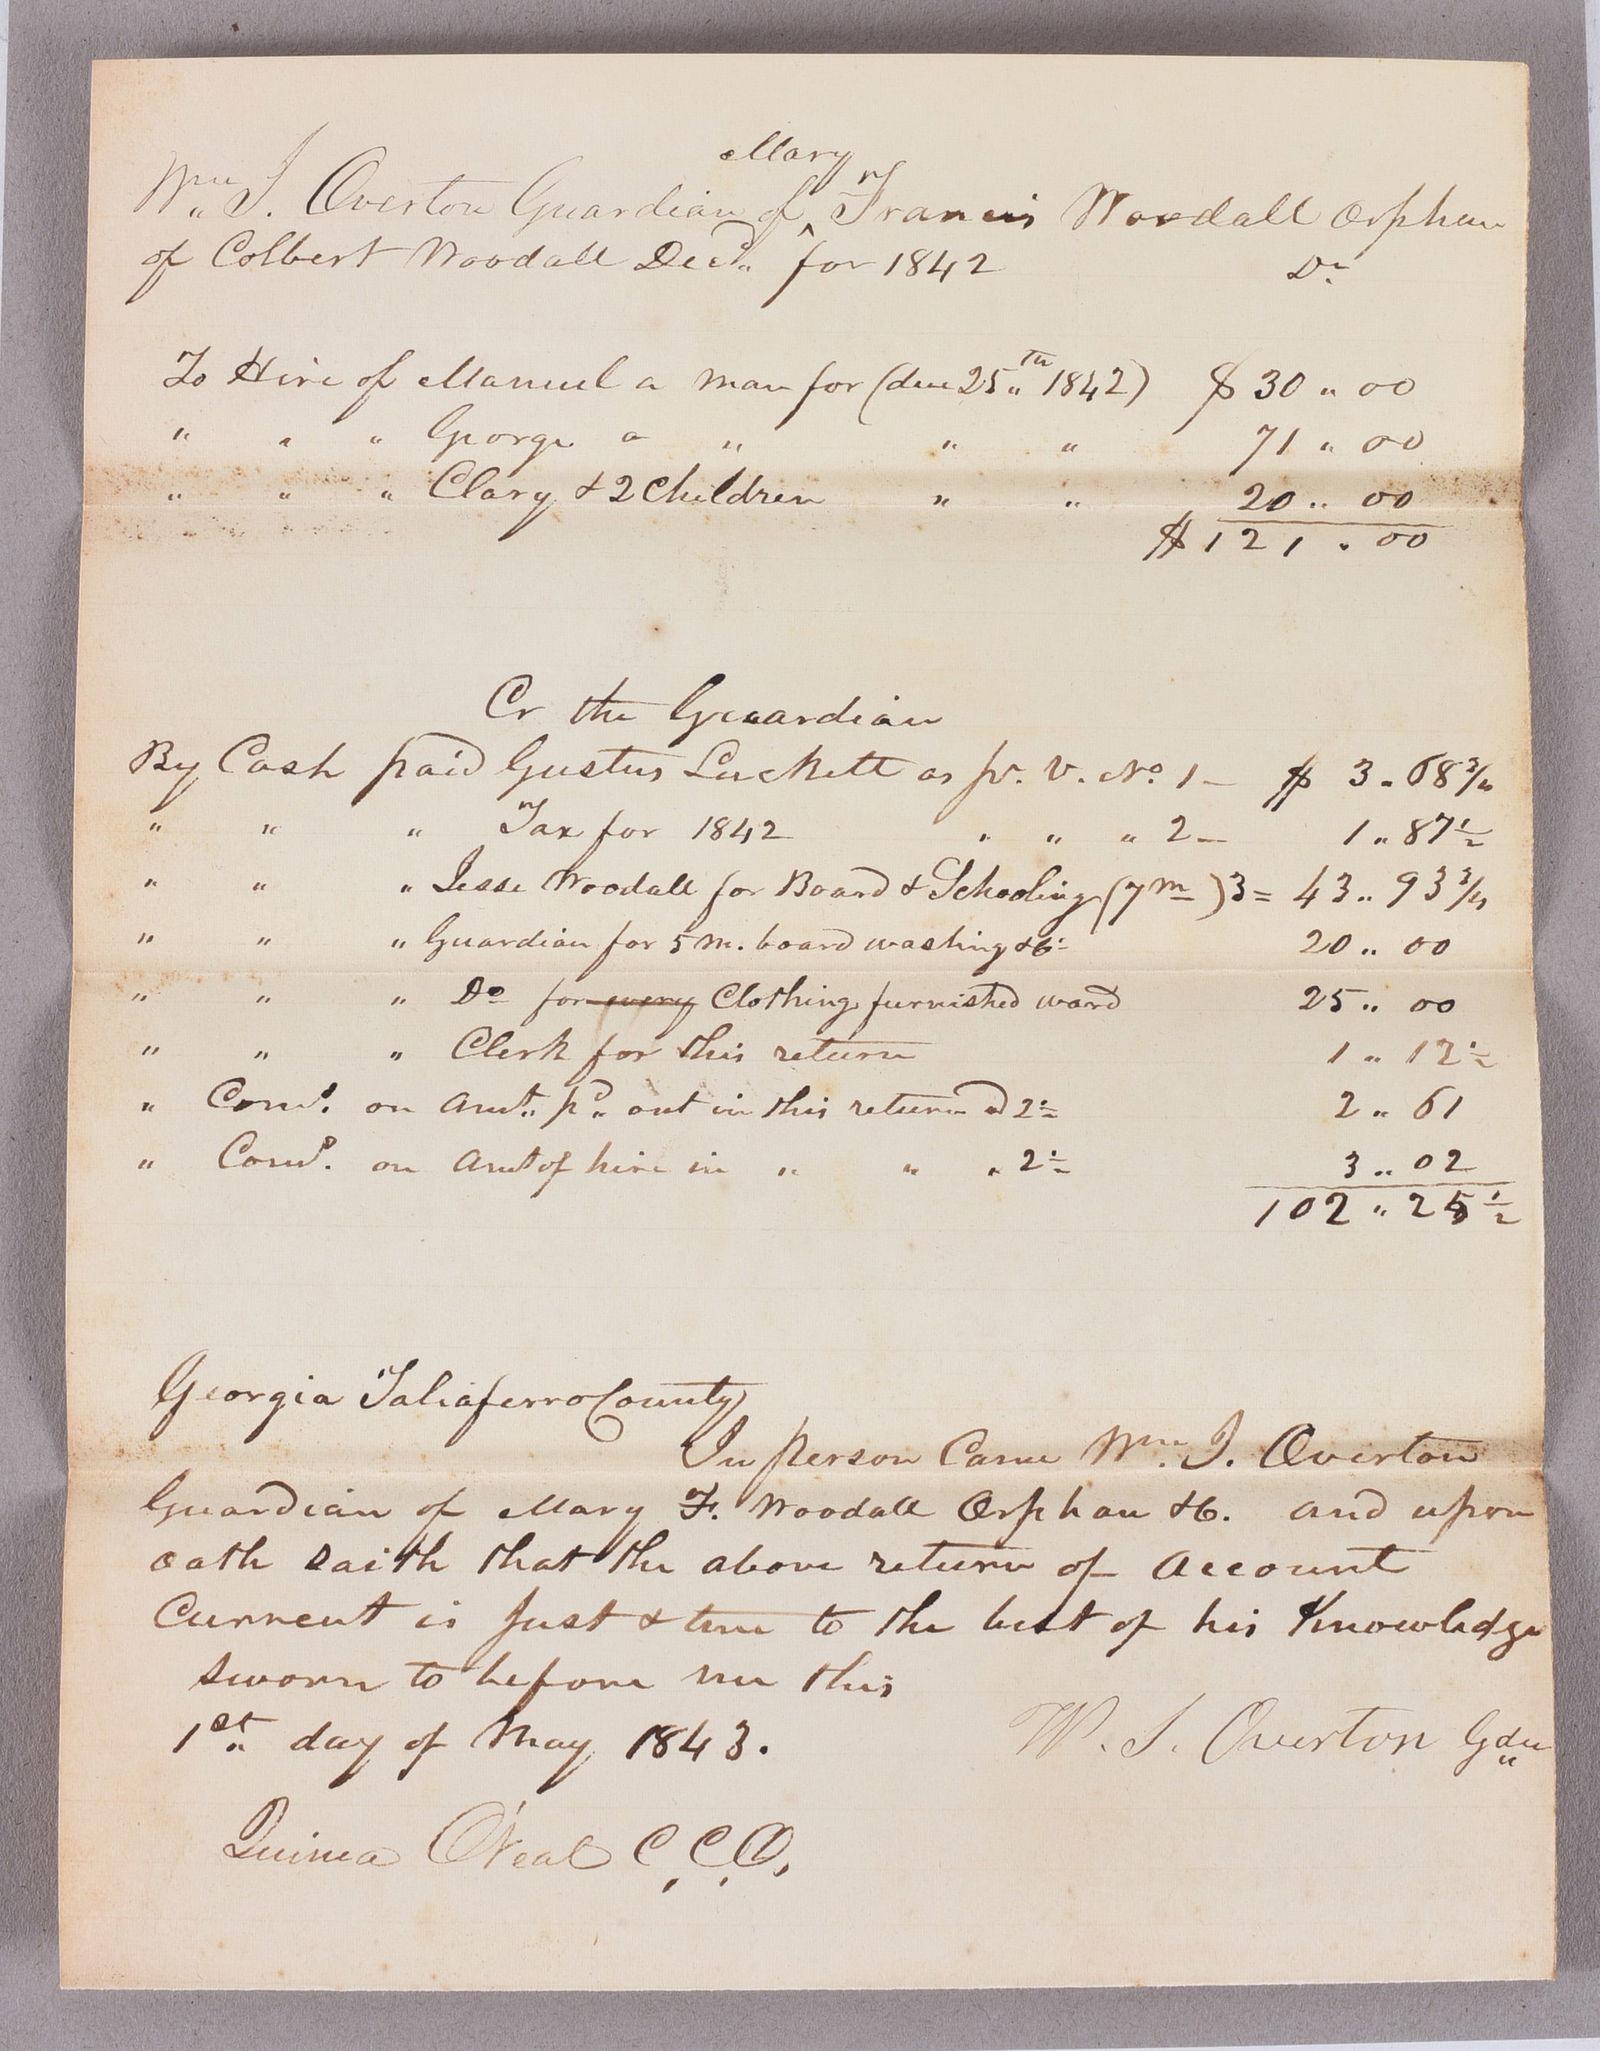 Mary
Wm J. Overton Guardian of ^ Francis Woodall Orphan
of Colbert Woodall Decd. for 1842 Dr.
To Hire of Manuel a man for (due 25th 1842) $ 30 " 00
" " " George a " " " 71 " 00
" " " Clary & 2 Children " " 20 " 00
$ 121 " 00
Cr the Guardian
By Cash paid Gustus Luckett as pr. V. No. 1 – $ 3 " 68 3/4
" " " Tax for 1842 " " " 2 – 1 " 87 1/2
" " " Jesse Woodall for Board & Schooling (7 m) 3 = 43 " 93 3/4
" " " Guardian for 5 m. board washing &c 20 " 00
" " " Do for every Clothing furnished ward 25 " 00
" " " Clerk for this return 1 " 12 1/2
" Coms. on Amt. pd. out in this return @ 2 1/2 2 " 61
" Coms. on Amt of hire in " " " 2 1/2 3 " 02
102 " 25 1/2
Georgia Taliaferro County
In person Came Wm. J. Overton
Guardian of Mary F. Woodall Orphan &c. and upon
oath saith that the above return of Account
Current is Just & true to the best of his Knowledge
Sworn to before me this
1st day of May 1843.
W. J. Overton Gdn
Quinea O'Neal C, C, O,